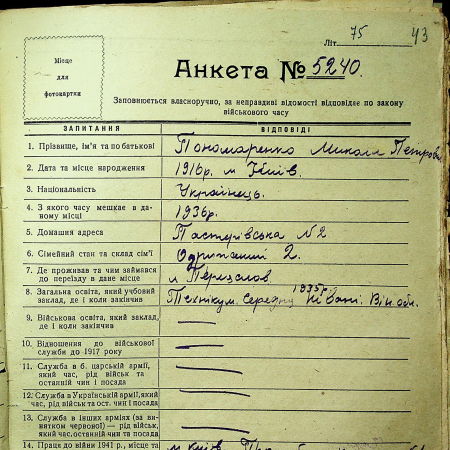 75
43
Літ
Місце
для
фотокартки
Анкета № 5240.
Заповнюється власноручно, за неправдиві відомості відповідає по закону
військового часу
ЗАПИТАННЯ ВІДПОВІДІ
1. Прізвище, ім'я та по батькові Пономаренко Микола Петрович
2. Дата та місце народження 1916р. м Київ.
3. Національність Українець.
4. З якого часу мешкає в да-
ному місці 1936р.
5. Домашня адреса Пастерівська №2
6. Сімейний стан та склад сім'ї Одружений 2.
7. Де проживав та чим займався
до переїзду в дане місце м
8. Загальна освіта, який учбовий
заклад, де і коли закінчив Технікум. 1935р. Він. обл.
9. Військова освіта, який заклад,
де і коли закінчив —
10. Відношення до військової
служби до 1917 року —
11. Служба в б. царській армії,
який час, рід військ та
останній чин і посада —
12. Служба в Українській армії, який
час, рід військ та ост. чин і посада —
13. Служба в інших арміях (за ви-
нятком червоної) — рід військ,
який час, останній чин та посада —
14. Праця до війни 1941 р., місце та м Київ